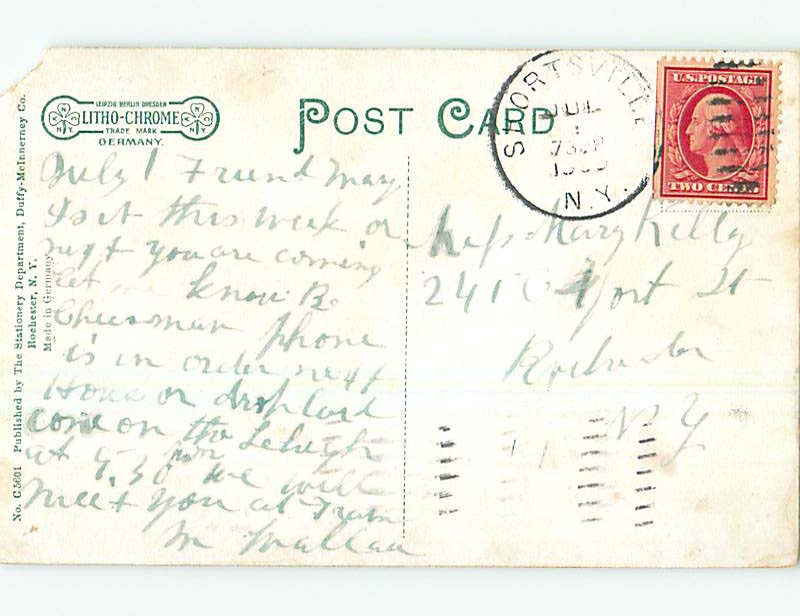 LEIPZIG BERLIN DRESDEN
LITHO-CHROME
TRADE MARK
GERMANY.
N N
N.Y. N.Y.
POST CARD
SHORTSVILLE
JUL
1
730P
1909
N.Y.
U.S. POSTAGE
TWO CENTS
No. C.5601 Published by The Stationery Department, Duffy-McInnerney Co.
Rochester, N. Y.
Made in Germany.
July 1 Friend Mary
Is it this week or
next you are coming
Let me know B.
Cheesman phone
is in order next
House or drop card
come on the Lehigh
at 5.30 pm we will
meet you at Train
M Wallace
Miss Mary Kelly
241 Cort St
Rochester
N Y